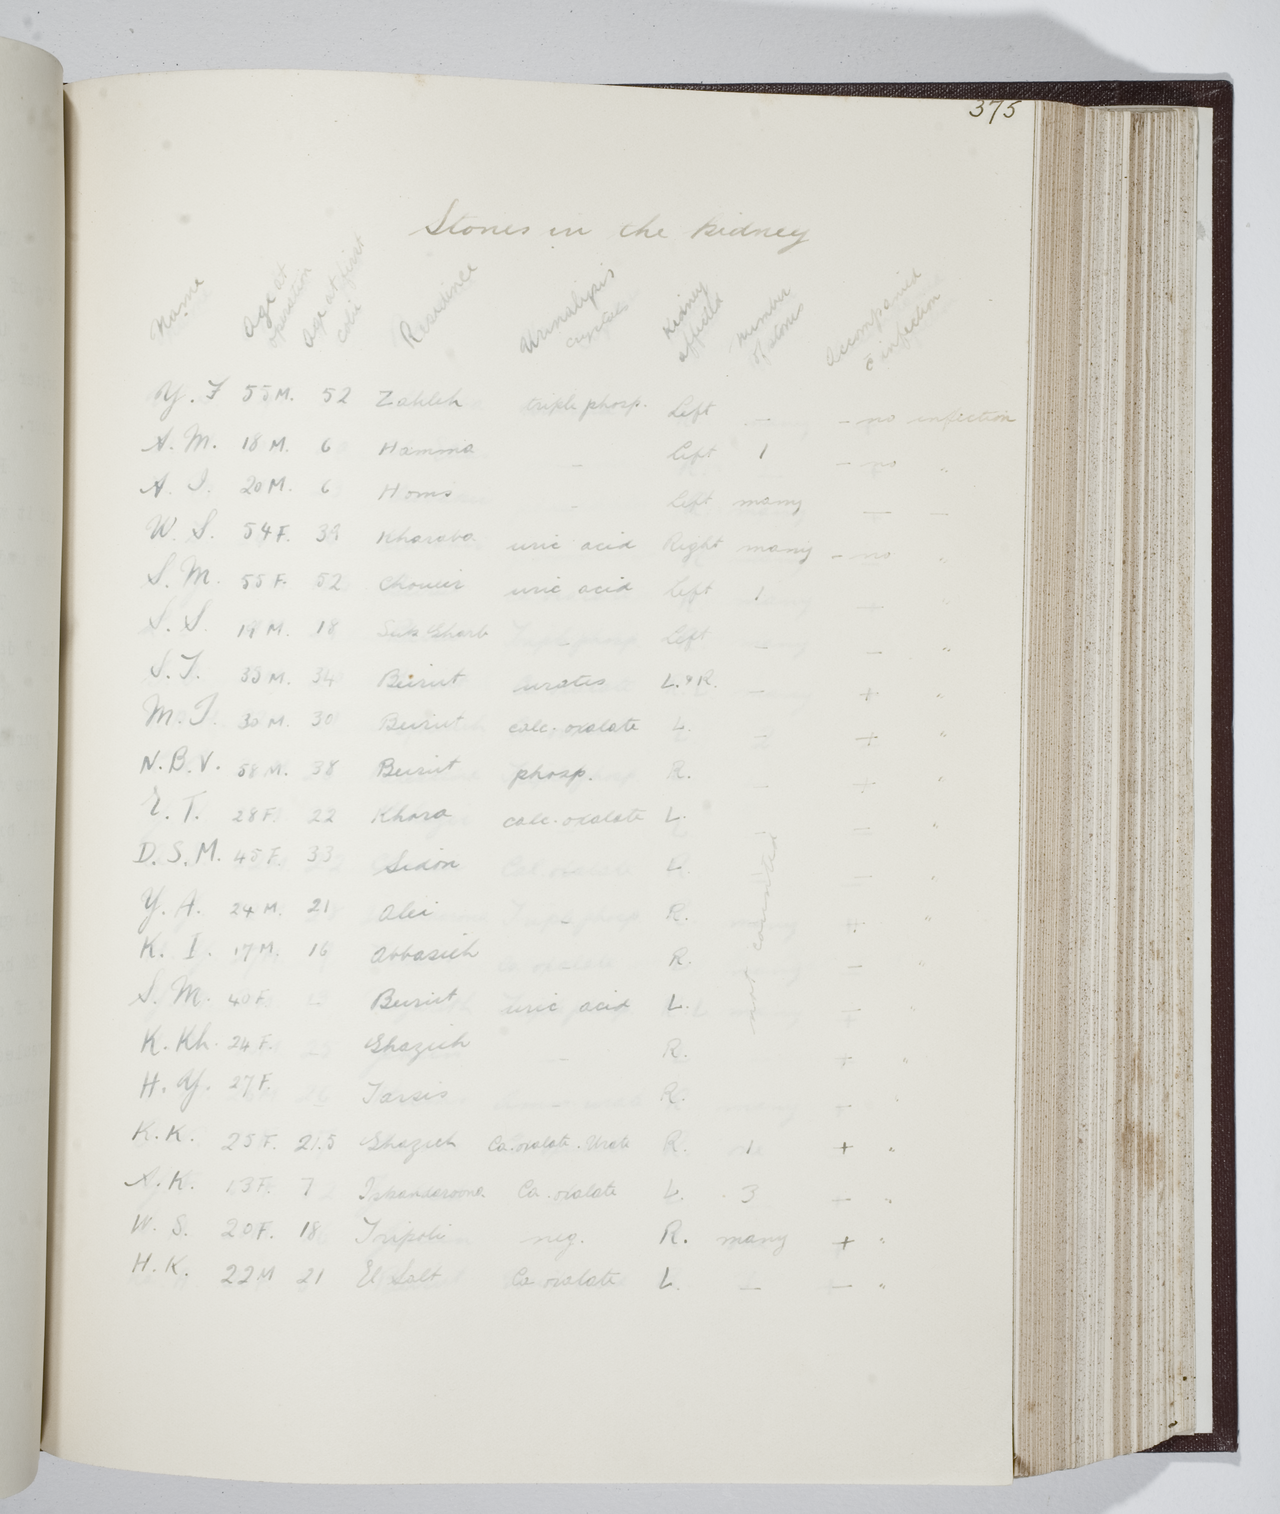 375
Stones in the kidney
Name Age at operation Age at first colic Residence Urinalysis crystals Kidney affected number of stones accompanied c̄ infection
Y. F 55 M. 52 Zahleh triple phosp. Left - - no infection
A. M. 18 M. 6 Hamma - Left 1 - no "
A. I. 20 M. 6 Homs - Left many — —
W. S. 54 F. 39 Kharaba uric acid Right many - no "
S. M. 55 F. 52 Choueir uric acid Left 1 — "
S. S. 19 M. 18 Left - — "
S. I. 39 M. 34 Beirut urates L. & R. - + "
M. I. 30 M. 30 Beirut calc. oxalate L. - + "
N. B. V. 58 M. 38 Beirut phosp. R. - + "
E. T. 28 F. 22 Khara calc. oxalate L. - — "
D. S. M. 45 F. 33 Sidon L. — "
Y. A. 24 M. 21 Alei - R. not counted + "
K. I. 17 M. 16 Abbasieh R. — "
S. M. 40 F. Beirut uric acid L. — "
K. Kh. 24 F. Ghazieh - R. + "
H. Y. 27 F. Tarsis R. — "
K. K. 25 F. 21.5 Ghazieh Ca. oxalate. Urate R. 1 + "
A. K. 13 F. 7 Iskanderoona Ca. oxalate L. 3 — "
W. S. 20 F. 18 Tripoli neg. R. many + "
H. K. 22 M 21 El Salt Ca oxalate L. — — "